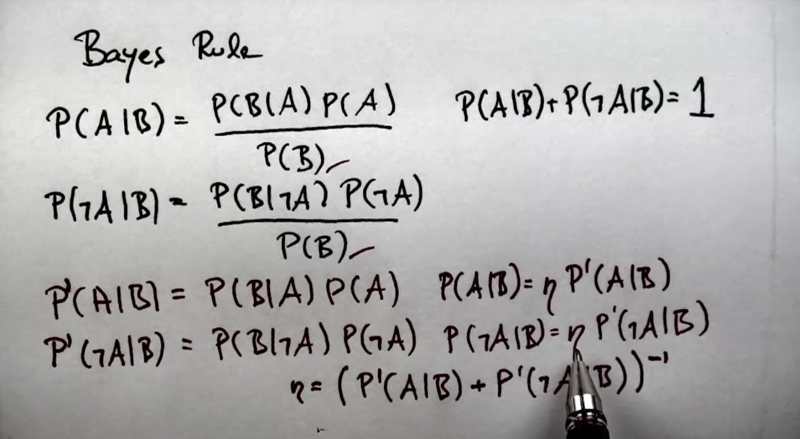 Bayes Rule
P(A|B) = P(B|A) P(A) / P(B) P(A|B) + P(¬A|B) = 1
P(¬A|B) = P(B|¬A) P(¬A) / P(B)
P'(A|B) = P(B|A) P(A) P(A|B) = η P'(A|B)
P'(¬A|B) = P(B|¬A) P(¬A) P(¬A|B) = η P'(¬A|B)
η = (P'(A|B) + P'(¬A|B))⁻¹